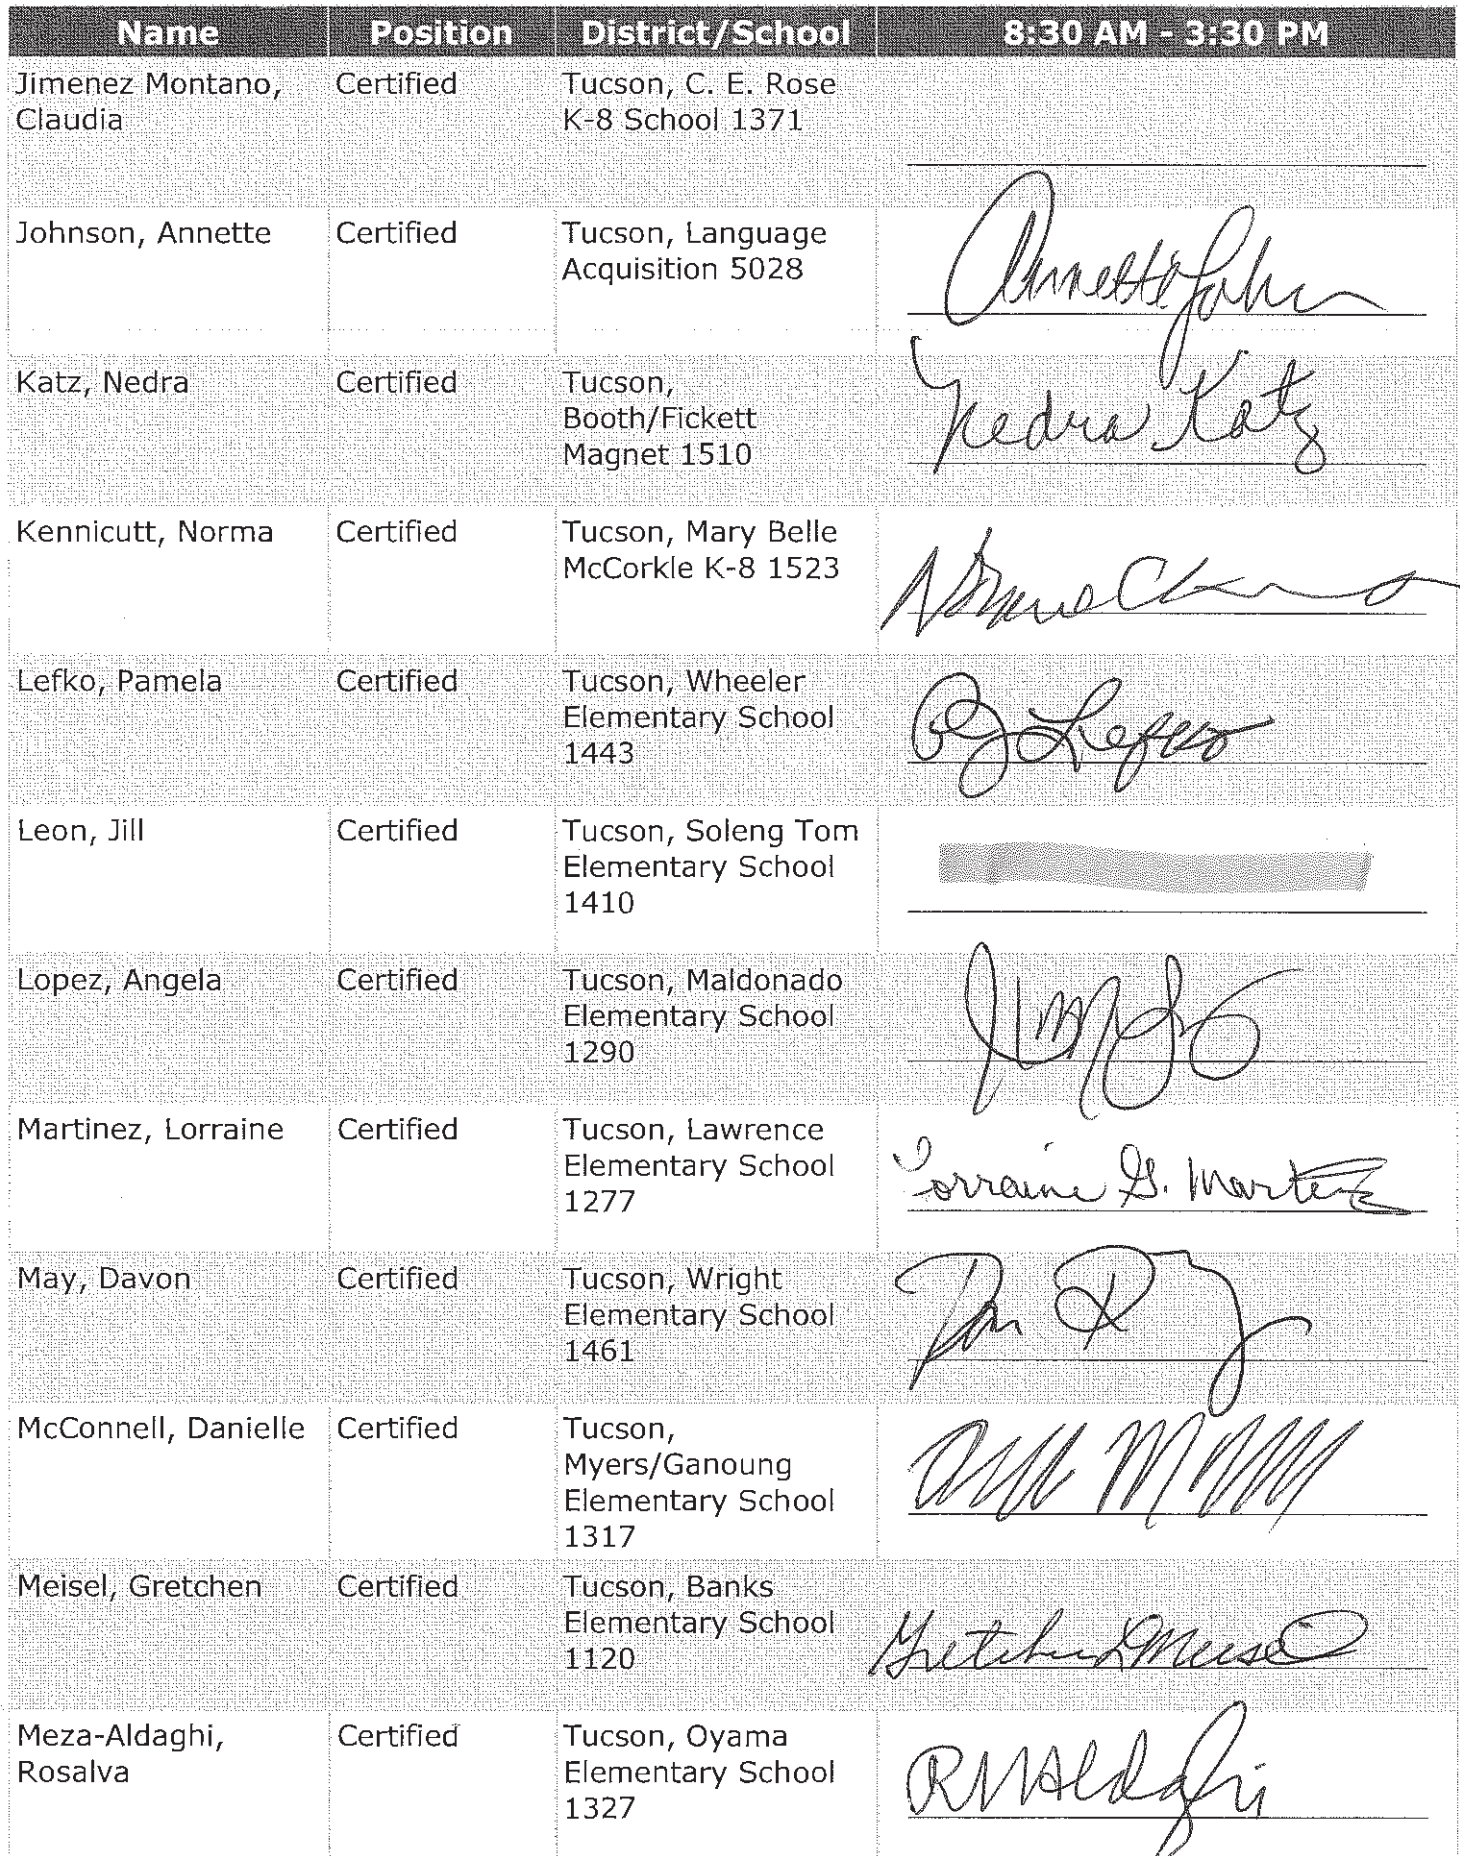 Name Position District/School 8:30 AM - 3:30 PM
Jimenez Montano, Certified Tucson, C. E. Rose
Claudia K-8 School 1371
Johnson, Annette Certified Tucson, Language
Acquisition 5028
Annette John
Katz, Nedra Certified Tucson,
Booth/Fickett
Magnet 1510
Nedra Katz
Kennicutt, Norma Certified Tucson, Mary Belle
McCorkle K-8 1523
Lefko, Pamela Certified Tucson, Wheeler
Elementary School
1443
Lefko
Leon, Jill Certified Tucson, Soleng Tom
Elementary School
1410
Lopez, Angela Certified Tucson, Maldonado
Elementary School
1290
Martinez, Lorraine Certified Tucson, Lawrence
Elementary School
1277
Lorraine G. Martinez
May, Davon Certified Tucson, Wright
Elementary School
1461
McConnell, Danielle Certified Tucson,
Myers/Ganoung
Elementary School
1317
Meisel, Gretchen Certified Tucson, Banks
Elementary School
1120
Gretchen Meisel
Meza-Aldaghi, Certified Tucson, Oyama
Rosalva Elementary School
1327
RMAldaghi